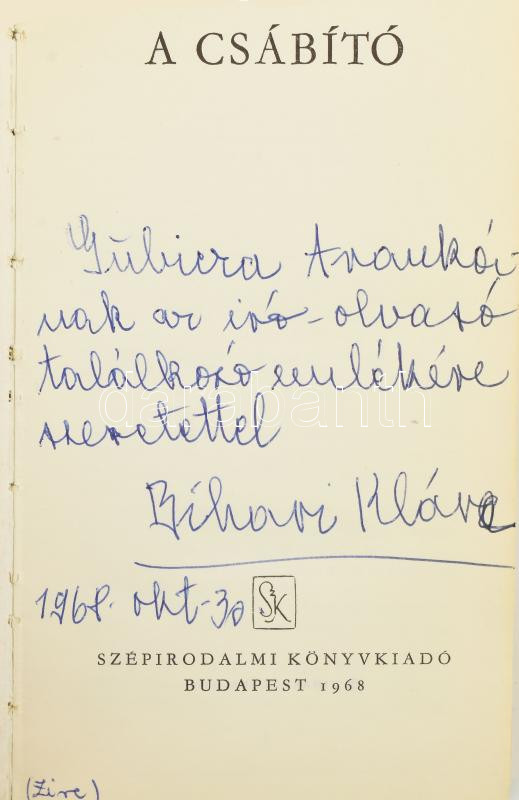 A CSÁBÍTÓ
Gubicza Arankó-
nak az író-olvasó
találkozó emlékére
szeretettel
darabanth
Bihari Klára
1968. okt. 30
SZK
SZÉPIRODALMI KÖNYVKIADÓ
BUDAPEST 1968
(Zirc)